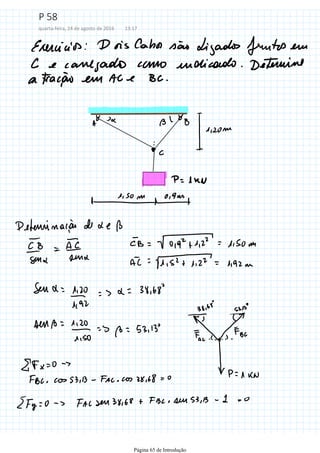 P 58
quarta-feira, 24 de agosto de 2016   13:17
Exercicio: Dois Cabos são ligados juntos em
C e carregado como indicado. Determine
a tração em AC e BC.
A α β B
1,20 m
C
P = 1 KN
1,50 m 0,9 m
Determinação de α e β
CB = √0,9² + 1,2² = 1,50 m
CB / sen α = AC / sen α
AC = √1,5² + 1,2² = 1,92 m
Sen α = 1,20 / 1,92 => α = 38,68°
sen β = 1,20 / 1,50 => β = 53,13°
38,68° 53,13°
F AC F BC
P = 1 KN
ΣFx = 0 ->
FBC. cos 53,13 - FAC. cos 38,68 = 0
ΣFy = 0 -> FAC sen 38,68 + FBC. sen 53,13 - 1 = 0
Página 65 de Introdução